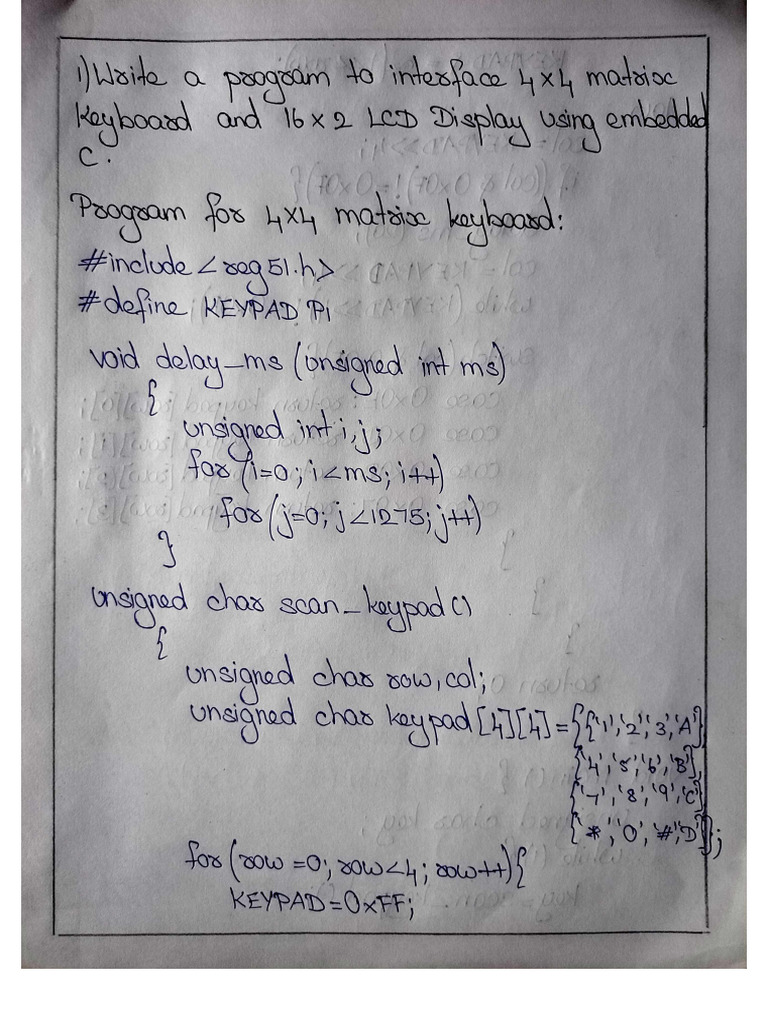 1) Write a program to interface 4x4 matrix
Keyboard and 16x2 LCD Display using embedded
C.
Program for 4x4 matrix keyboard:
#include <reg51.h>
#define KEYPAD P1
void delay_ms (unsigned int ms)
{
unsigned int i,j;
for (i=0; i<ms; i++)
for (j=0; j<1275; j++)
}
unsigned char scan_keypad()
{
unsigned char row, col;
unsigned char keypad [4][4] = {{'1','2','3','A'},
{'4','5','6','B'},
{'7','8','9','C'},
{'*','0','#','D'}};
for (row=0; row<4; row++){
KEYPAD=0xFF;